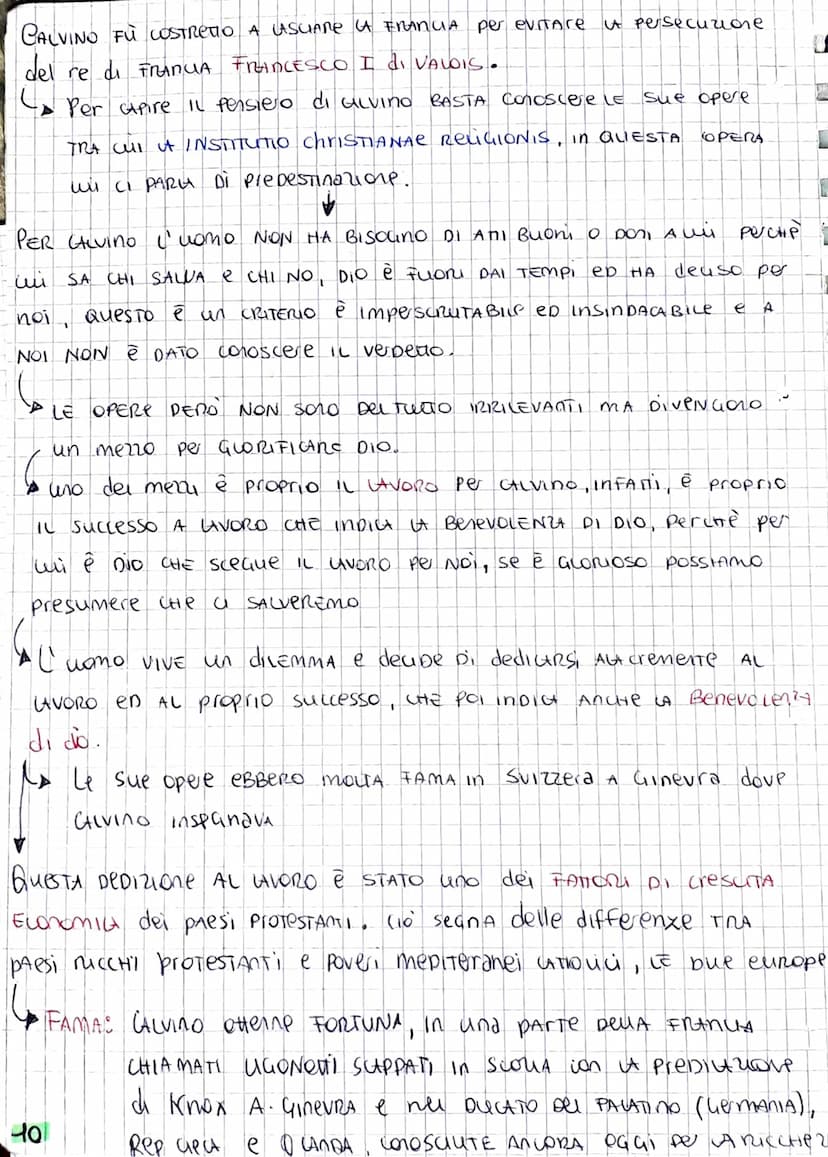 CALVINO FÙ COSTRETTO A LASCIARE LA FRANCIA per EVITARE LA persecuzione
del re di FRANCIA FRANCESCO I di VALOIS.
Per capire IL pensiero di CALVINO BASTA conoscere LE sue opere
TRA cui LA INSTITUTIO ChRISTIANAE RELIGIONIS, in QUESTA OPERA
lui ci PARLA DI predestinazione.
PER CALVINO L'uomo NON HA BISOGNO DI ATTI BUONI O DONI A lui perchè
lui SA CHI SALVA e CHI NO, DIO è FUORI DAI TEMPI ED HA deciso per
noi, QUESTO è un CRITERIO è IMPESCRUTABILE ED INSINDACABILE e A
NOI NON è DATO conoscere IL verdetto.
LE OPERE PERÒ NON SONO DEL TUTTO IRRILEVANTI MA DIVENGONO
un mezzo per GLORIFICARE DIO.
uno dei mezzi è proprio IL LAVORO per CALVINO, INFATTI, è proprio
IL SUCCESSO A LAVORO CHE INDICA LA BENEVOLENZA DI DIO, perchè per
lui è DIO CHE SCEGLIE IL LAVORO per NOI, se È GLORIOSO possiamo
presumere CHE CI SALVEREMO
L'uomo VIVE un DILEMMA e decide DI dedicarsi ALACREMENTE AL
LAVORO ED AL proprio successo, CHE poi INDICA ANCHE LA Benevolenza
di dio.
Le sue opere EBBERO MOLTA FAMA in SVIZZERA A Ginevra dove
CALVINO INSEGNAVA
QUESTA DEDIZIONE AL LAVORO è STATO uno dei FATTORI DI CRESCITA
ECONOMICA dei paesi PROTESTANTI. CIÒ segna delle differenze TRA
PAESI RICCHI protestanti e poveri mediteranei CATTOLICI, LE DUE europe
FAMA: CALVINO ottenne FORTUNA, in una PARTE DELLA FRANCIA
CHIAMATI UGONOTTI SCAPPATI in SCOZIA con LA PREDICAZIONE
di Knox A. GINEVRA e nel DUCATO DEL PALATINO (Germania),
REP CECA e OLANDA, CONOSCIUTE ANCORA OGGI per LA RICCHEZ
10